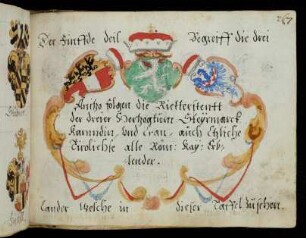 267
Der Fünffde deil Begreiff die drei
Anitzo folgen die Rietterstentt
der dreier Hertzogtumr Steyrmarck
Karnndtn, vnd Cran, auch Etzliche
Tirolische alle Röm: Kay: Erb,
lender.
Lander Welche in dieser Taffel